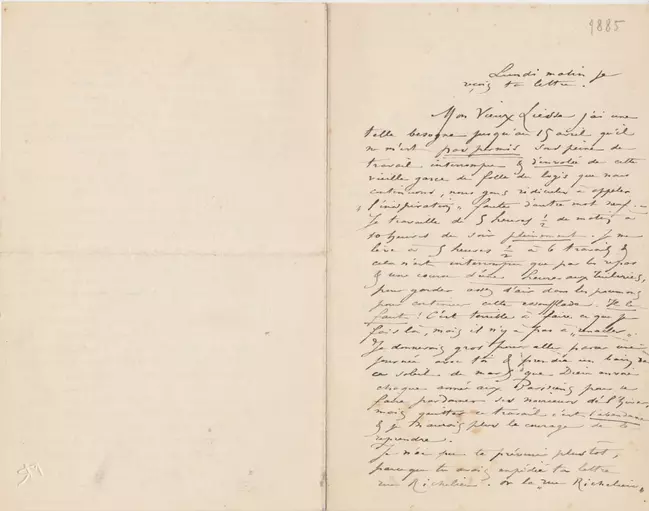 1885
Lundi matin je
reçois ta lettre.
Mon Vieux Liesse j'ai une
telle besogne jusqu'au 15 avril qu'il
ne m'est pas permis sous peine de
travail interrompu & d'envolée de cette
vieille garce de folle du logis que nous
continuons, nous gens ridicules à appeler
"l'inspiration" faute d'autre mot neuf. —
Je travaille de 5 heures ½ du matin à
10 heures du soir pleinement. Je me
lève à 5 heures ½ à 6 travail &
cela n'est interrompu que par les repas
& une course d'une heure aux Tuileries,
pour garder assez d'air dans les poumons
pour continuer cette . Il le
faut! C'est terrible à faire ce que je
fais là, mais il n'y a pas à
Je donnerais gros pour aller passer une
journée avec toi & prendre un bain de
ce soleil de mars que Dieu envoie
chaque année aux Parisiens pour se
faire pardonner ses noirceurs de l'hiver
mais quitter ce travail c'est l'abandonner
& je n'aurais plus le courage de le
reprendre.
Je n'ai pu te prévenir plus tôt,
parce que tu avais expédié ta lettre
rue Richelieu. Or la "rue Richelieu"